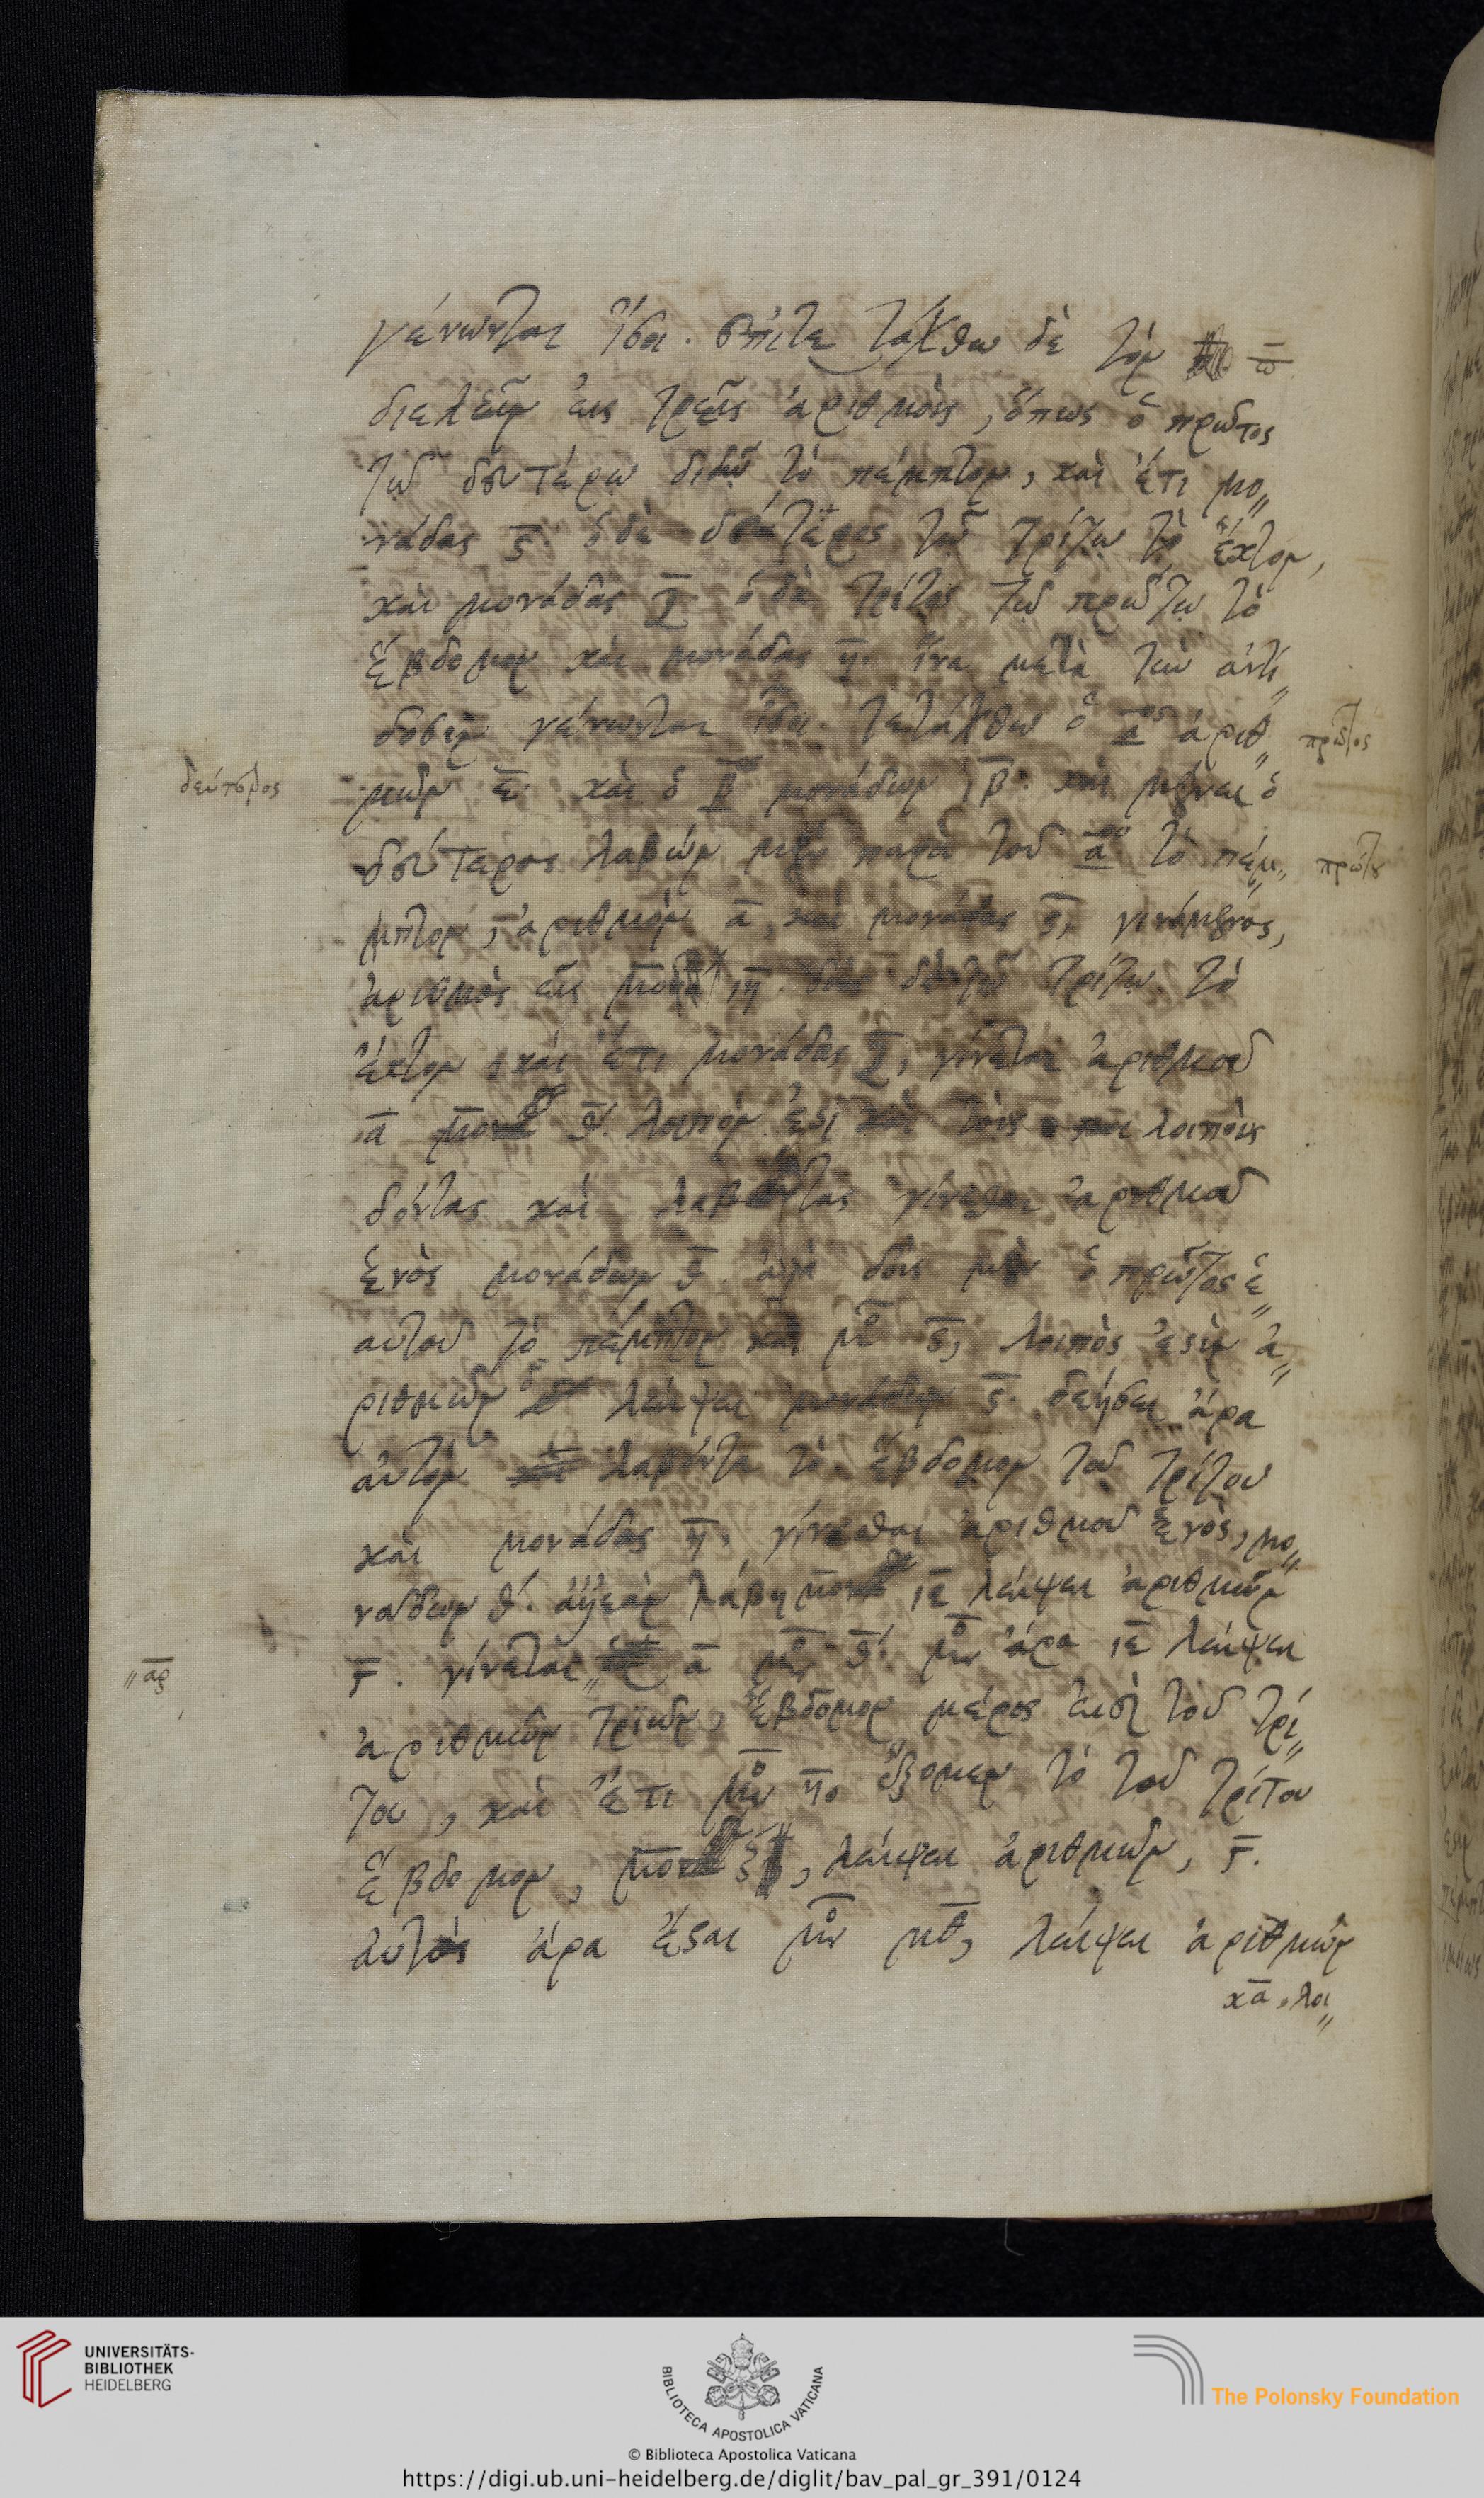 γένωνται ἴσοι. ἐπιτετάχθω δὲ τὸν π
διελεῖν εἰς τρεῖς ἀριθμοὺς, ὅπως ὁ πρῶτος
τῷ δευτέρῳ διδῷ τὸ πέμπτον, καὶ ἔτι μο〃
νάδας ς̄. ὁ δὲ δεύτερος τῷ τρίτῳ τὸ ἕκτον,
καὶ μονάδας ζ̄. ὁ δὲ τρίτος τῷ πρώτῳ τὸ
ἕβδομον καὶ μονάδας η̄. ἵνα μετὰ τὴν ἀντί〃
δοσιν γένωνται ἴσοι. τετάχθω ὁ ᾱος ἀριθ〃
πρῶτος
δεύτερος
μῶν ε̄ καὶ ὁ β̄ος μονάδων ιβ̄. καὶ μένει ὁ
δεύτερος λαβὼν μὲν παρὰ τοῦ ᾱου τὸ πέμ〃
πρώτου
μπτον, ἀριθμὸν ᾱ, καὶ μονάδας ς̄, γινόμενος,
ἀριθμὸς εἷς ιη̄. δοὺς δὲ τῷ τρίτῳ τὸ
ἕκτον, καὶ ἔτι μονάδας ζ̄, γίνεται ἀριθμοῦ
ᾱ θ̄. λοιπόν ἐστι καὶ τοὺς λοιποὺς
δόντας καὶ λαβόντας γίνεσθαι ἀριθμοῦ
ἑνὸς μονάδων θ̄. ἀλλὰ δοὺς μὲν ὁ πρῶτος ἑ〃
αυτοῦ τὸ πέμπτον καὶ μ̊ ς̄, λοιπός ἐστιν ἀ〃
ριθμῶν δ̄ λείψει μονάδων ς̄. δεήσει ἄρα
αὐτὸν λαβόντα τὸ ἕβδομον τοῦ τρίτου
καὶ μονάδας η̄, γίνεσθαι ἀριθμοῦ ἑνὸς, μο〃
νάδων θ̄. ἀλλ' ἐὰν λάβῃ ιε̄ λείψει ἀριθμῶν
〃ἀρ
γ̄. γίνεται ᾱ μ̊ν θ̄. μ̊ν ἄρα ιε̄ λείψει
ἀριθμῶν τριῶν, ἕβδομον μέρος εἰσὶ τοῦ τρί〃
του, καὶ ἔτι μ̊ν η̄. ἕξομεν τὸ τοῦ τρίτου
ἕβδομον, ζ̄, λείψει ἀριθμῶν, γ̄.
αὐτὸς ἄρα ἔσται μ̊ν μθ̄, λείψει ἀριθμῶν
κᾱ, λοι〃
UNIVERSITÄTS-
BIBLIOTHEK
HEIDELBERG
BIBLIOTECA APOSTOLICA VATICANA
The Polonsky Foundation
© Biblioteca Apostolica Vaticana
https://digi.ub.uni-heidelberg.de/diglit/bav_pal_gr_391/0124